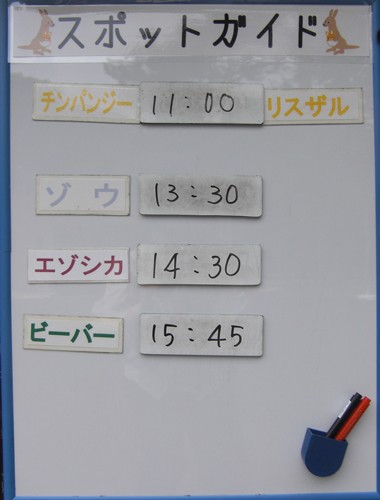 スポットガイド
チンパンジー 11:00 リスザル
ゾウ 13:30
エゾシカ 14:30
ビーバー 15:45